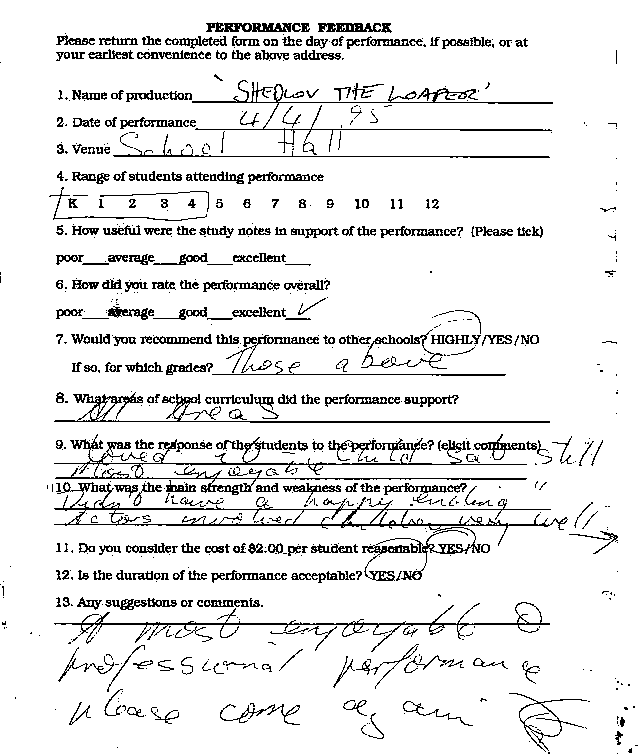 PERFORMANCE FEEDBACK
Please return the completed form on the day of performance, if possible, or at
your earliest convenience to the above address.
1. Name of production 'SHEDLOV THE LOAFER'
2. Date of performance 4/4/95
3. Venue School Hall
4. Range of students attending performance
K 1 2 3 4 5 6 7 8 9 10 11 12
5. How useful were the study notes in support of the performance? (Please tick)
poor average good excellent
6. How did you rate the performance overall?
poor average good excellent ✓
7. Would you recommend this performance to other schools? HIGHLY/YES/NO
If so, for which grades? Those above
8. What areas of school curriculum did the performance support?
All Areas
9. What was the response of the students to the performance? (elicit comments)
Loved it - Child sat still
Most enjoyable
10. What was the main strength and weakness of the performance?
"Didn't have a happy ending"
Actors involved children very well →
11. Do you consider the cost of $2.00 per student reasonable? YES/NO
12. Is the duration of the performance acceptable? YES/NO
13. Any suggestions or comments.
A most enjoyable &
professional performance
please come again